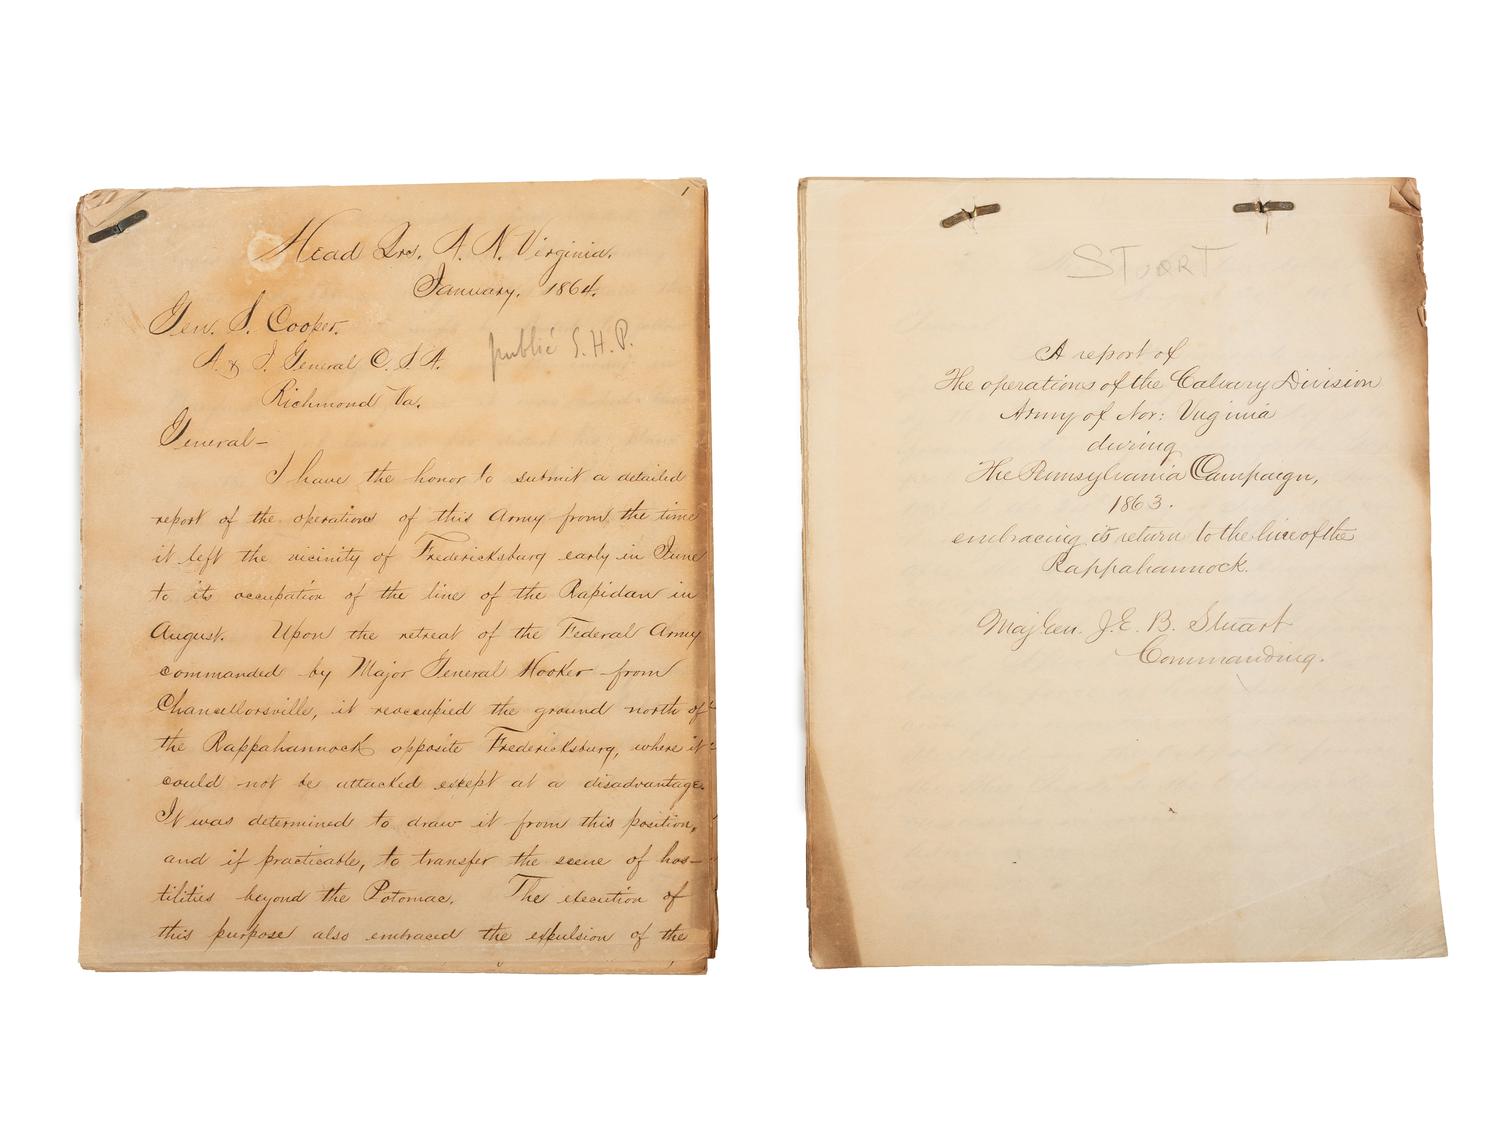 1
Head Qrs. A. N. Virginia.
January, 1864.
Gen. S. Cooper.
A. & I. General C. S. A.
Richmond Va.
public S. H. P.
General—
I have the honor to submit a detailed
report of the operations of this Army from the time
it left the vicinity of Fredericksburg early in June
to its occupation of the line of the Rapidan in
August. Upon the retreat of the Federal Army
commanded by Major General Hooker from
Chancellorsville, it reoccupied the ground north of
the Rappahannock opposite Fredericksburg, where it
could not be attacked except at a disadvantage.
It was determined to draw it from this position,
and if practicable, to transfer the scene of hos-
tilities beyond the Potomac. The execution of
this purpose also embraced the expulsion of the
STUART
A report of
The operations of the Calvary Division
Army of Nor: Virginia
during
The Pennsylvania Campaign,
1863.
embracing its return to the line of the
Rappahannock.
Maj Gen. J. E. B. Stuart
Commanding.